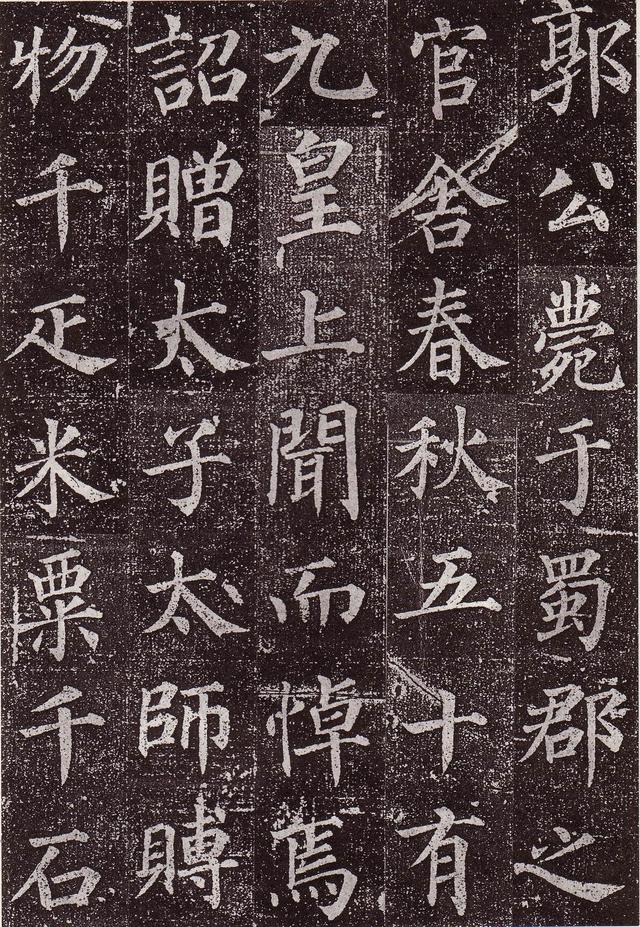 郭公薨于蜀郡之
官舍春秋五十有
九皇上聞而悼焉
詔贈太子太師賻
物千疋米粟千石